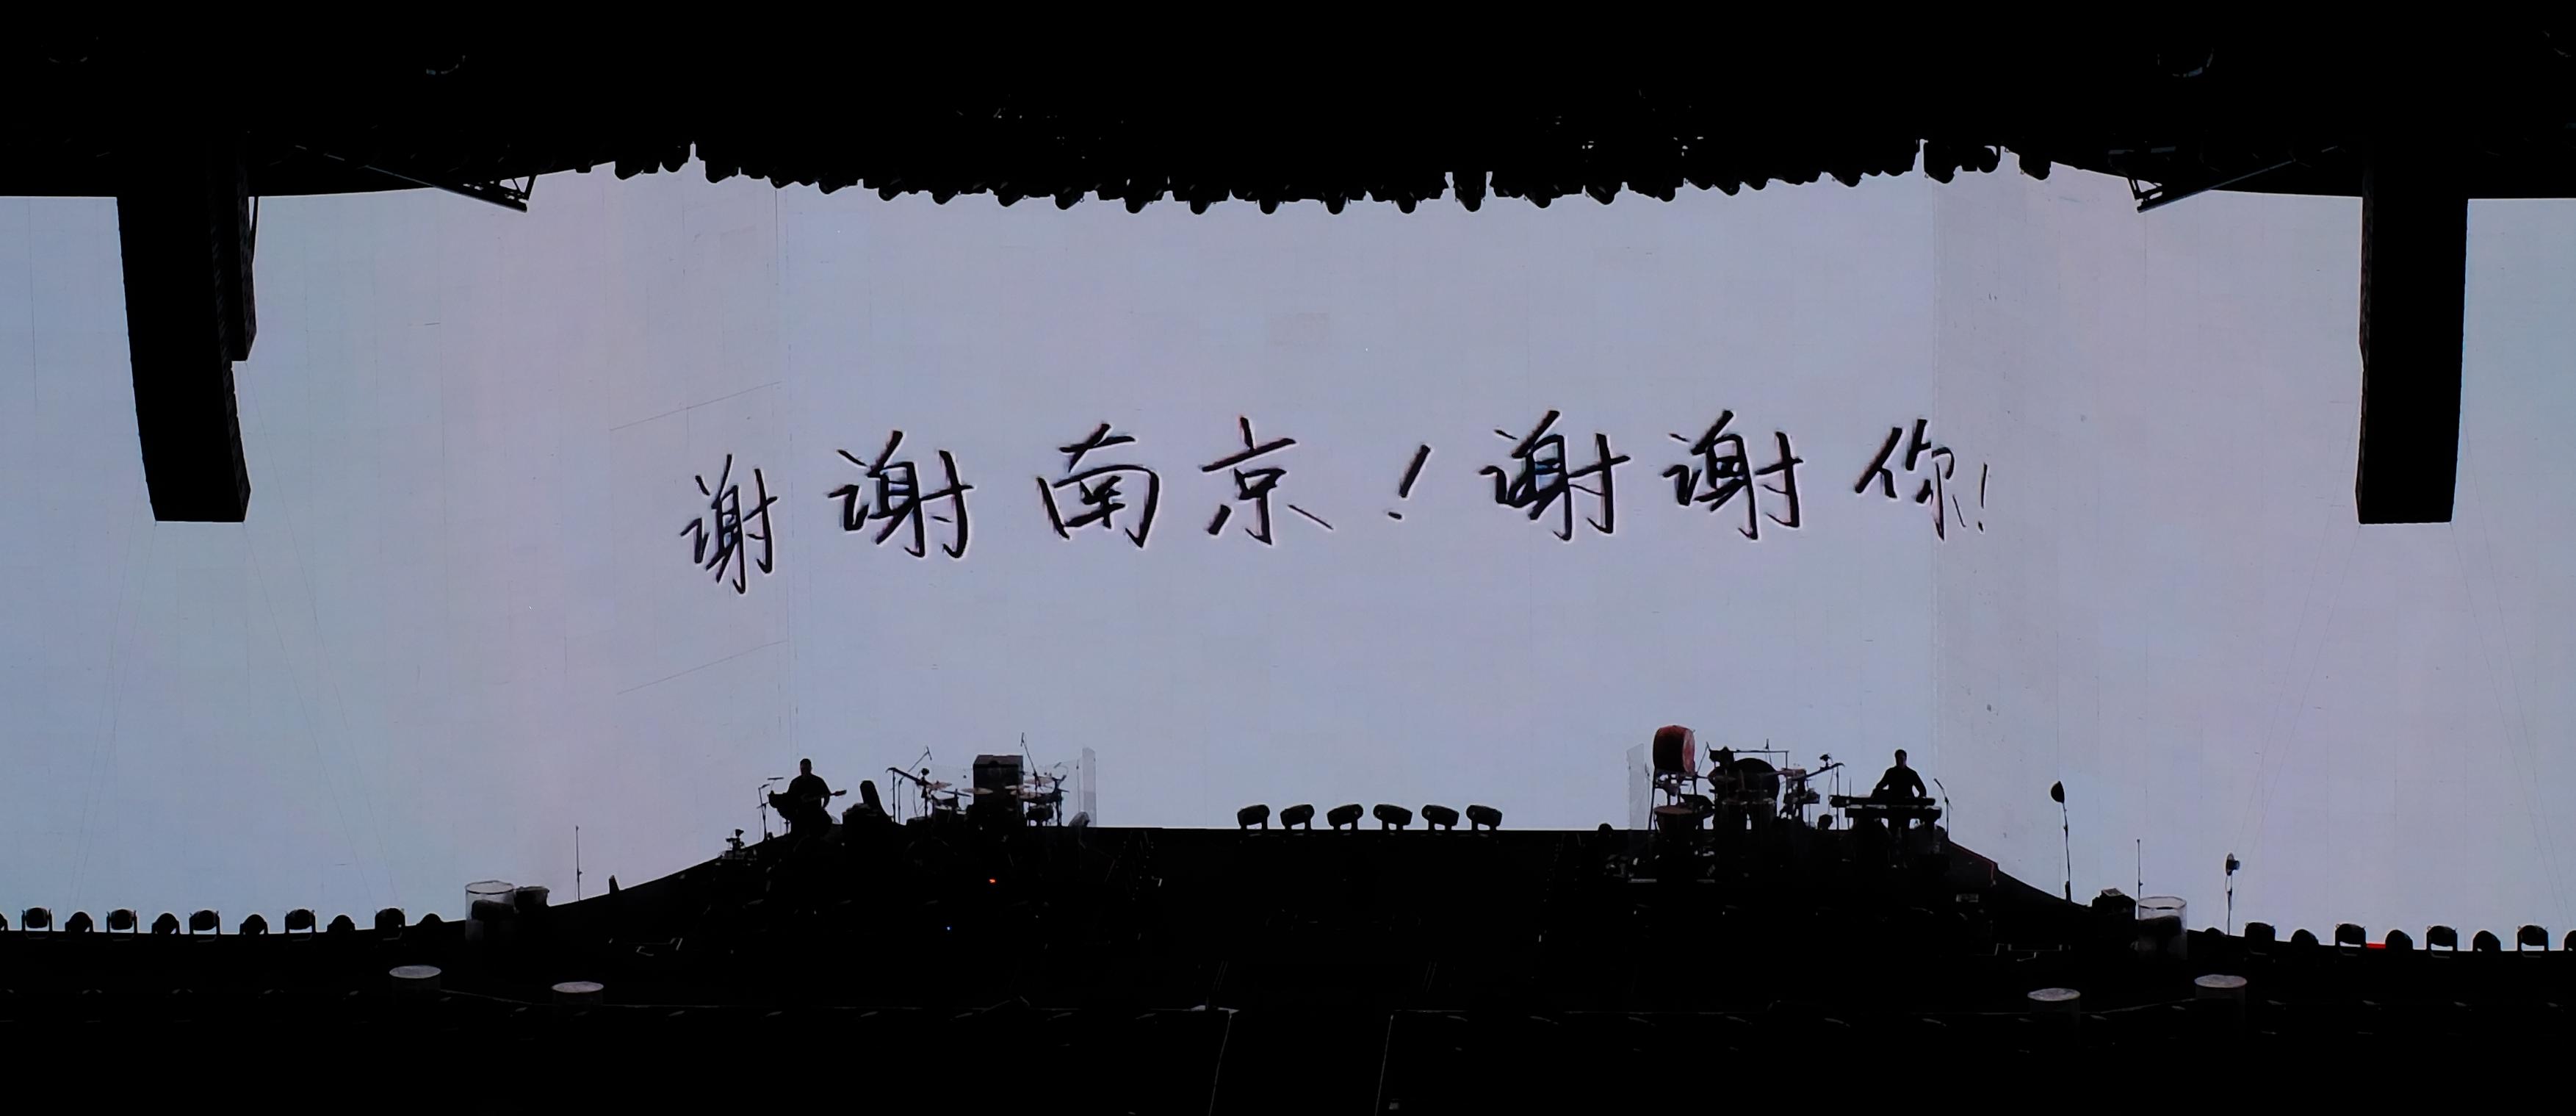 谢谢南京！谢谢你！